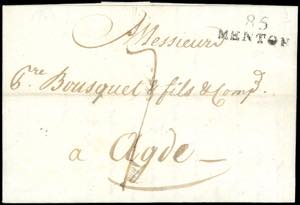 85
MENTON
Messieurs
Pre Bousquet & fils & Comp.
a Agde